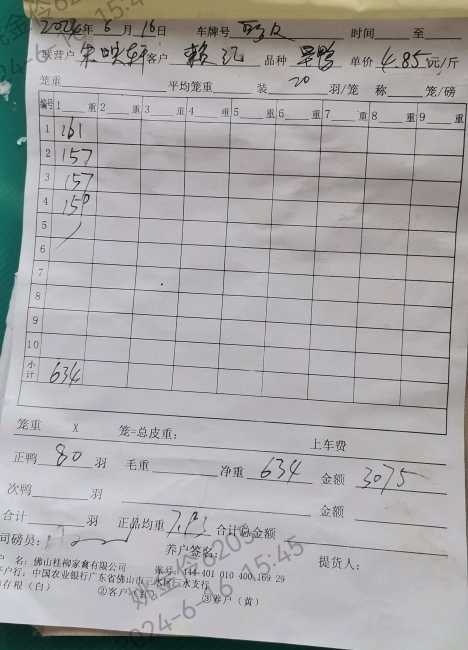 2024年 6 月 16 日 车牌号 时间 至
联营户 客户 品种 单价 4.85 元/斤
笼重 平均笼重 装 20 羽/笼 称 笼/磅
编号 1 重 2 重 3 重 4 重 5 重 6 重 7 重 8 重 9 重
1 161
2 157
3 157
4
5
6
7
8
9
10
小计 634
笼重 X 笼=总皮重: 上车费
正鸭 80 羽 毛重 净重 634 金额 3075
次鸭 羽 金额
合计 羽 正品均重 合计总金额
司磅员: 养户签名: 提货人:
户 名: 佛山桂柳家禽有限公司 账号: 144 401 010 400 169 29
户行: 中国农业银行广东省佛山市三水区 水支行
存根(白) ②客户(红) ③养户(黄)
姚金伶6205
2024-6-16 15:45